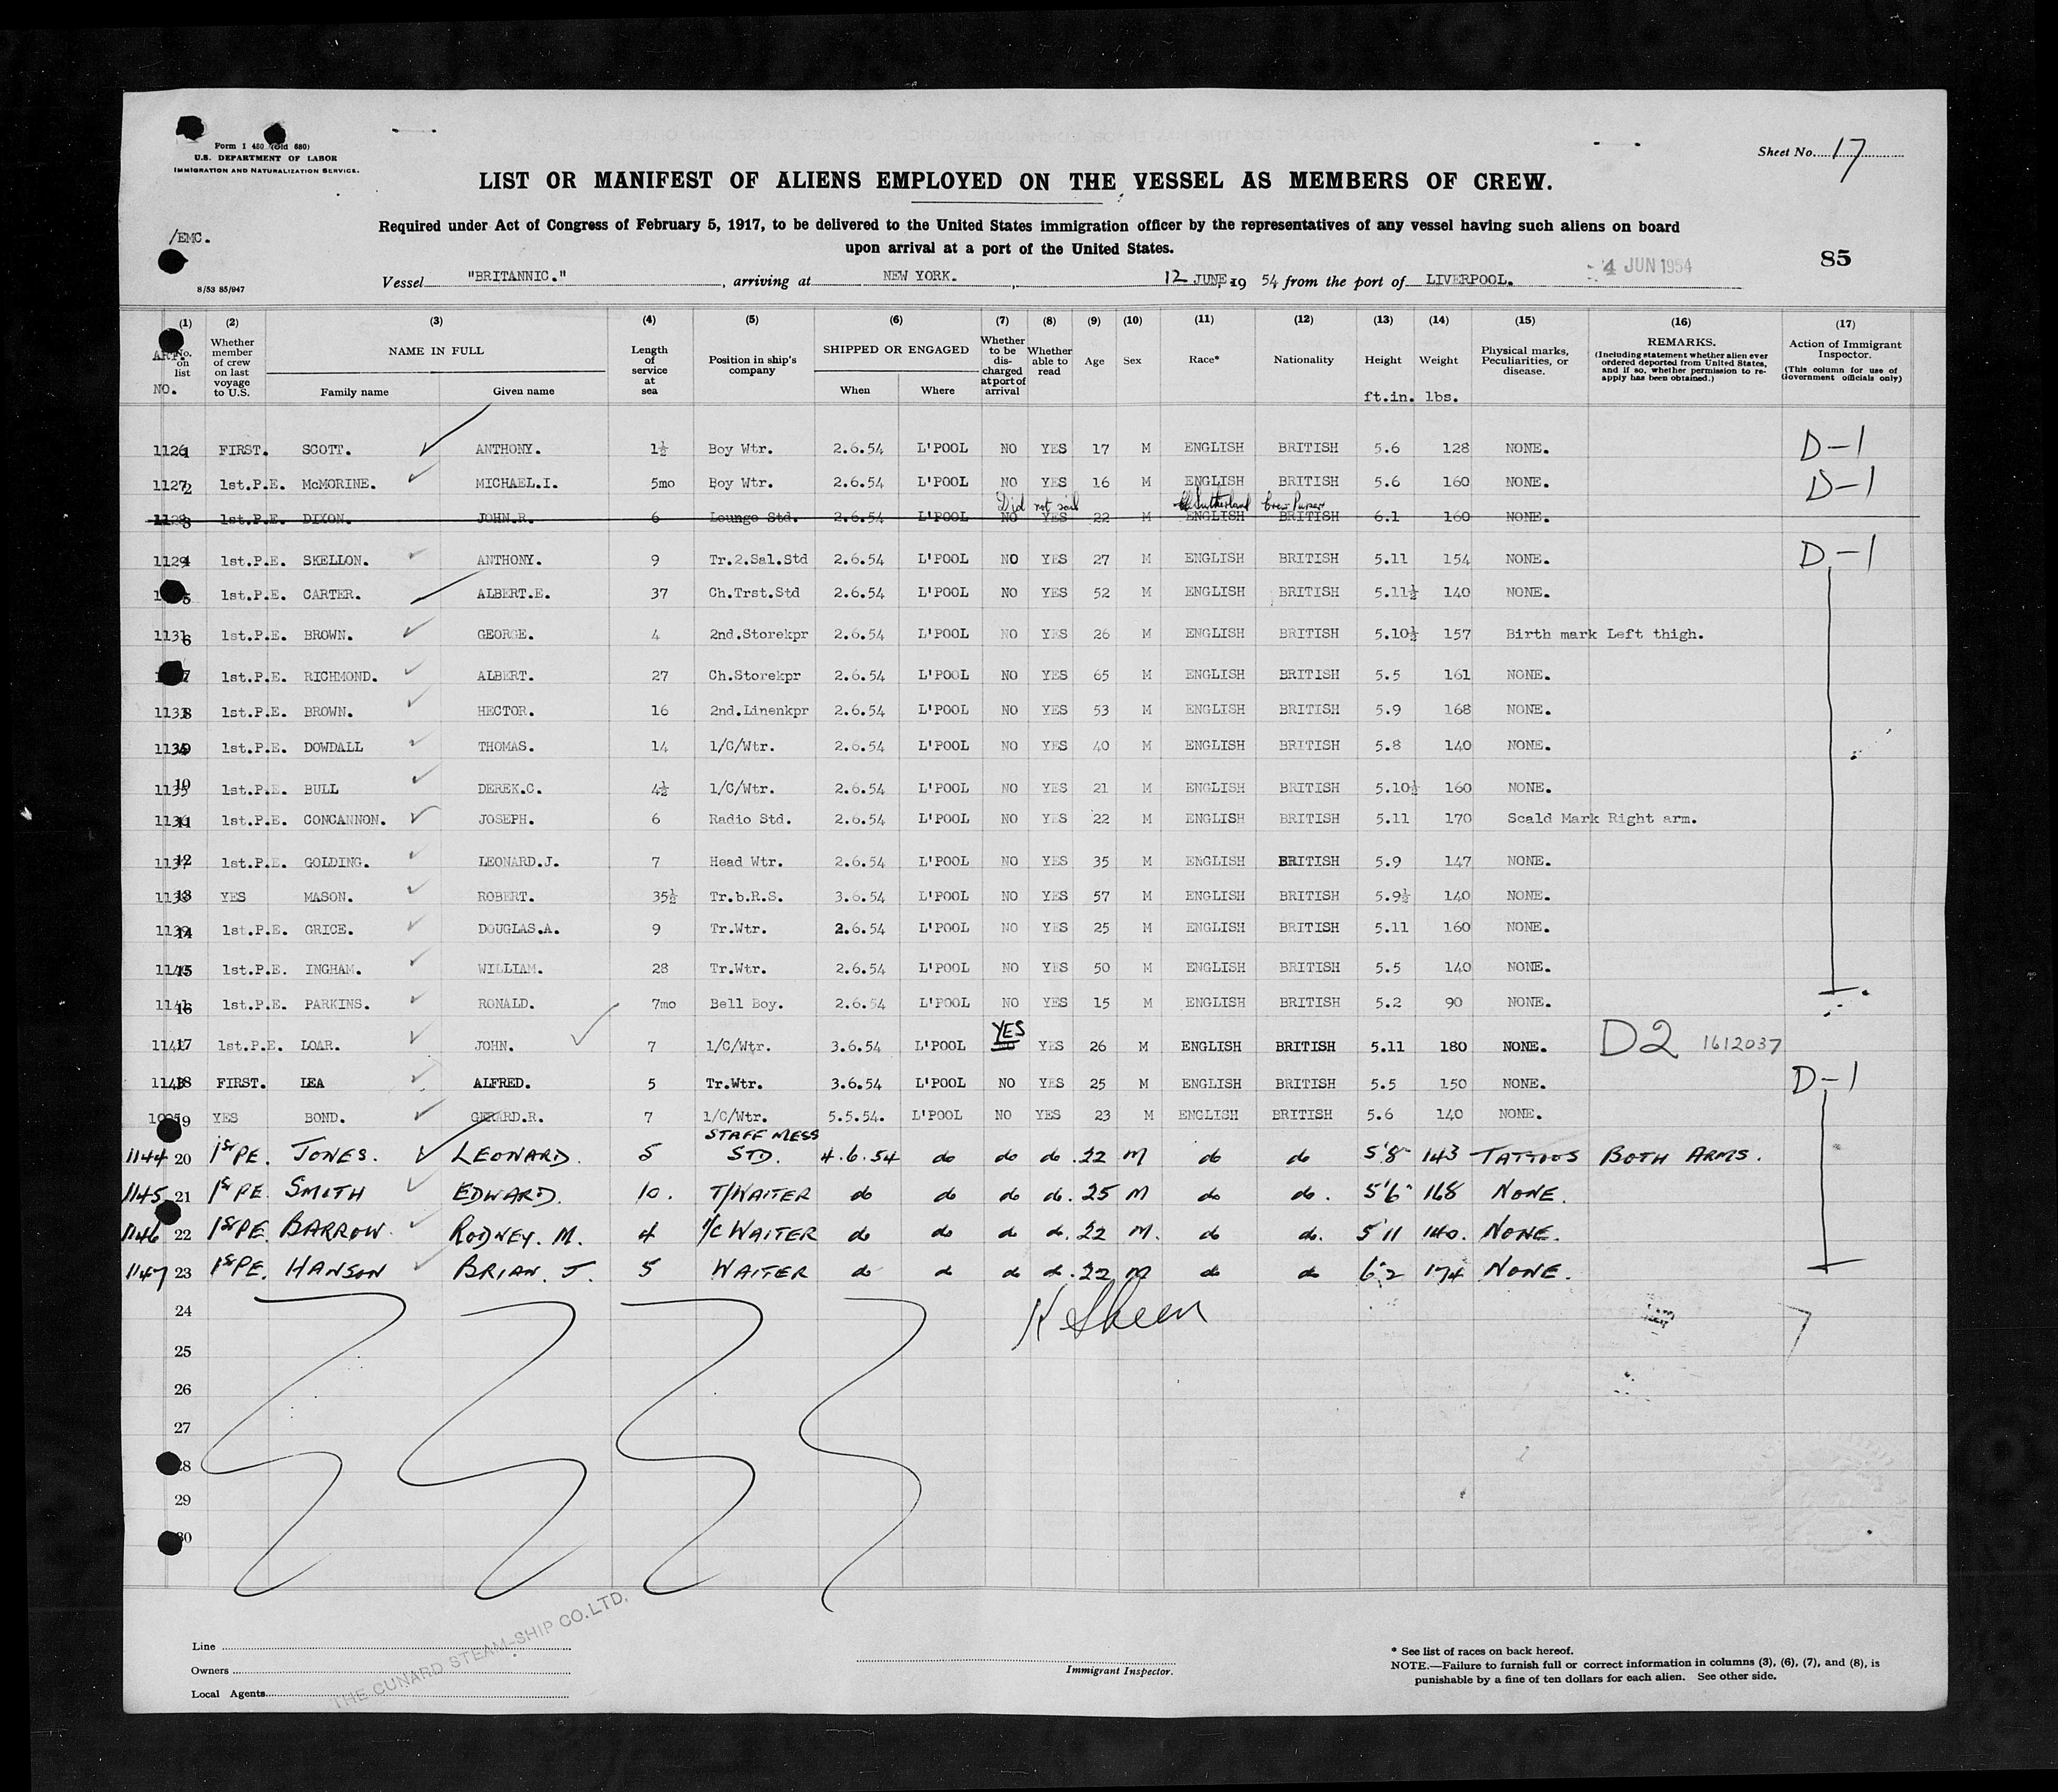 Form I 480 (Old 680)
U.S. DEPARTMENT OF LABOR
IMMIGRATION AND NATURALIZATION SERVICE.
Sheet No. 17
LIST OR MANIFEST OF ALIENS EMPLOYED ON THE VESSEL AS MEMBERS OF CREW.
Required under Act of Congress of February 5, 1917, to be delivered to the United States immigration officer by the representatives of any vessel having such aliens on board
upon arrival at a port of the United States.
/EMC.
85
4 JUN 1954
8/53 85/947
Vessel "BRITANNIC." , arriving at NEW YORK. , 12 JUNE, 19 54 from the port of LIVERPOOL.
(1) (2) (3) (4) (5) (6) (7) (8) (9) (10) (11) (12) (13) (14) (15) (16) (17)
No. on list
NO.
Whether member of crew on last voyage to U.S.
NAME IN FULL
Family name Given name
Length of service at sea
Position in ship's company
SHIPPED OR ENGAGED
When Where
Whether to be discharged at port of arrival
Whether able to read
Age
Sex
Race*
Nationality
Height
ft.in.
Weight
lbs.
Physical marks, Peculiarities, or disease.
REMARKS.
(Including statement whether alien ever ordered deported from United States, and if so, whether permission to re-apply has been obtained.)
Action of Immigrant Inspector.
(This column for use of Government officials only)
1126 1 FIRST. SCOTT. ANTHONY. 1½ Boy Wtr. 2.6.54 L'POOL NO YES 17 M ENGLISH BRITISH 5.6 128 NONE. D-1
1127 2 1st.P.E. McMORINE. MICHAEL.I. 5mo Boy Wtr. 2.6.54 L'POOL NO YES 16 M ENGLISH BRITISH 5.6 160 NONE. D-1
Did not sail Sutherland Crew Purser
1128 3 1st.P.E. DIXON. JOHN.R. 6 Lounge Std. 2.6.54 L'POOL NO YES 22 M ENGLISH BRITISH 6.1 160 NONE.
1129 4 1st.P.E. SKELLON. ANTHONY. 9 Tr.2.Sal.Std 2.6.54 L'POOL NO YES 27 M ENGLISH BRITISH 5.11 154 NONE. D-1
5 1st.P.E. CARTER. ALBERT.E. 37 Ch.Trst.Std 2.6.54 L'POOL NO YES 52 M ENGLISH BRITISH 5.11½ 140 NONE.
1131 6 1st.P.E. BROWN. GEORGE. 4 2nd.Storekpr 2.6.54 L'POOL NO YES 26 M ENGLISH BRITISH 5.10½ 157 Birth mark Left thigh.
7 1st.P.E. RICHMOND. ALBERT. 27 Ch.Storekpr 2.6.54 L'POOL NO YES 65 M ENGLISH BRITISH 5.5 161 NONE.
1133 8 1st.P.E. BROWN. HECTOR. 16 2nd.Linenkpr 2.6.54 L'POOL NO YES 53 M ENGLISH BRITISH 5.9 168 NONE.
1134 9 1st.P.E. DOWDALL THOMAS. 14 1/C/Wtr. 2.6.54 L'POOL NO YES 40 M ENGLISH BRITISH 5.8 140 NONE.
1135 10 1st.P.E. BULL DEREK.C. 4½ 1/C/Wtr. 2.6.54 L'POOL NO YES 21 M ENGLISH BRITISH 5.10½ 160 NONE.
1136 11 1st.P.E. CONCANNON. JOSEPH. 6 Radio Std. 2.6.54 L'POOL NO YES 22 M ENGLISH BRITISH 5.11 170 Scald Mark Right arm.
1137 12 1st.P.E. GOLDING. LEONARD.J. 7 Head Wtr. 2.6.54 L'POOL NO YES 35 M ENGLISH BRITISH 5.9 147 NONE.
1138 13 YES MASON. ROBERT. 35½ Tr.b.R.S. 3.6.54 L'POOL NO YES 57 M ENGLISH BRITISH 5.9½ 140 NONE.
1139 14 1st.P.E. GRICE. DOUGLAS.A. 9 Tr.Wtr. 2.6.54 L'POOL NO YES 25 M ENGLISH BRITISH 5.11 160 NONE.
1140 15 1st.P.E. INGHAM. WILLIAM. 28 Tr.Wtr. 2.6.54 L'POOL NO YES 50 M ENGLISH BRITISH 5.5 140 NONE.
1141 16 1st.P.E. PARKINS. RONALD. 7mo Bell Boy. 2.6.54 L'POOL NO YES 15 M ENGLISH BRITISH 5.2 90 NONE.
1142 17 1st.P.E. LOAR. JOHN. 7 1/C/Wtr. 3.6.54 L'POOL YES YES 26 M ENGLISH BRITISH 5.11 180 NONE. D2 1612037
1143 18 FIRST. LEA ALFRED. 5 Tr.Wtr. 3.6.54 L'POOL NO YES 25 M ENGLISH BRITISH 5.5 150 NONE. D-1
19 YES BOND. GERARD.R. 7 1/C/Wtr. 5.5.54. L'POOL NO YES 23 M ENGLISH BRITISH 5.6 140 NONE.
1144 20 1st PE. JONES. LEONARD. 5 STAFF MESS STD. 4.6.54 do do do. 22 M do do 5'8" 143 TATTOOS BOTH ARMS.
1145 21 1st PE. SMITH EDWARD. 10. T/WAITER do do do do. 25 M do do. 5'6" 168 NONE.
1146 22 1st PE. BARROW. RODNEY. M. 4 1/C WAITER do do do do. 22 M. do do. 5'11 140. NONE.
1147 23 1st PE. HANSON BRIAN. J. 5 WAITER do do do do. 22 M do do 6'2 174 NONE.
24
K Skeen
25
26
27
28
29
30
THE CUNARD STEAM-SHIP CO. LTD.
Line
Owners
Local Agents
Immigrant Inspector.
* See list of races on back hereof.
NOTE.—Failure to furnish full or correct information in columns (3), (6), (7), and (8), is
punishable by a fine of ten dollars for each alien. See other side.